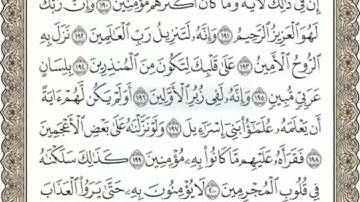 إِنَّ فِى ذَٰلِكَ لَءَايَةً وَمَا كَانَ أَكْثَرُهُم مُّؤْمِنِينَ ١٩٠ وَإِنَّ رَبَّكَ
لَهُوَ ٱلْعَزِيزُ ٱلرَّحِيمُ ١٩١ وَإِنَّهُۥ لَتَنزِيلُ رَبِّ ٱلْعَٰلَمِينَ ١٩٢ نَزَلَ بِهِ
ٱلرُّوحُ ٱلْأَمِينُ ١٩٣ عَلَىٰ قَلْبِكَ لِتَكُونَ مِنَ ٱلْمُنذِرِينَ ١٩٤ بِلِسَانٍ
عَرَبِىٍّ مُّبِينٍ ١٩٥ وَإِنَّهُۥ لَفِى زُبُرِ ٱلْأَوَّلِينَ ١٩٦ أَوَلَمْ يَكُن لَّهُمْ ءَايَةً
أَن يَعْلَمَهُۥ عُلَمَٰٓؤُا۟ بَنِىٓ إِسْرَٰٓءِيلَ ١٩٧ وَلَوْ نَزَّلْنَٰهُ عَلَىٰ بَعْضِ ٱلْأَعْجَمِينَ
١٩٨ فَقَرَأَهُۥ عَلَيْهِم مَّا كَانُوا۟ بِهِۦ مُؤْمِنِينَ ١٩٩ كَذَٰلِكَ سَلَكْنَٰهُ
فِى قُلُوبِ ٱلْمُجْرِمِينَ ٢٠٠ لَا يُؤْمِنُونَ بِهِۦ حَتَّىٰ يَرَوُا۟ ٱلْعَذَابَ